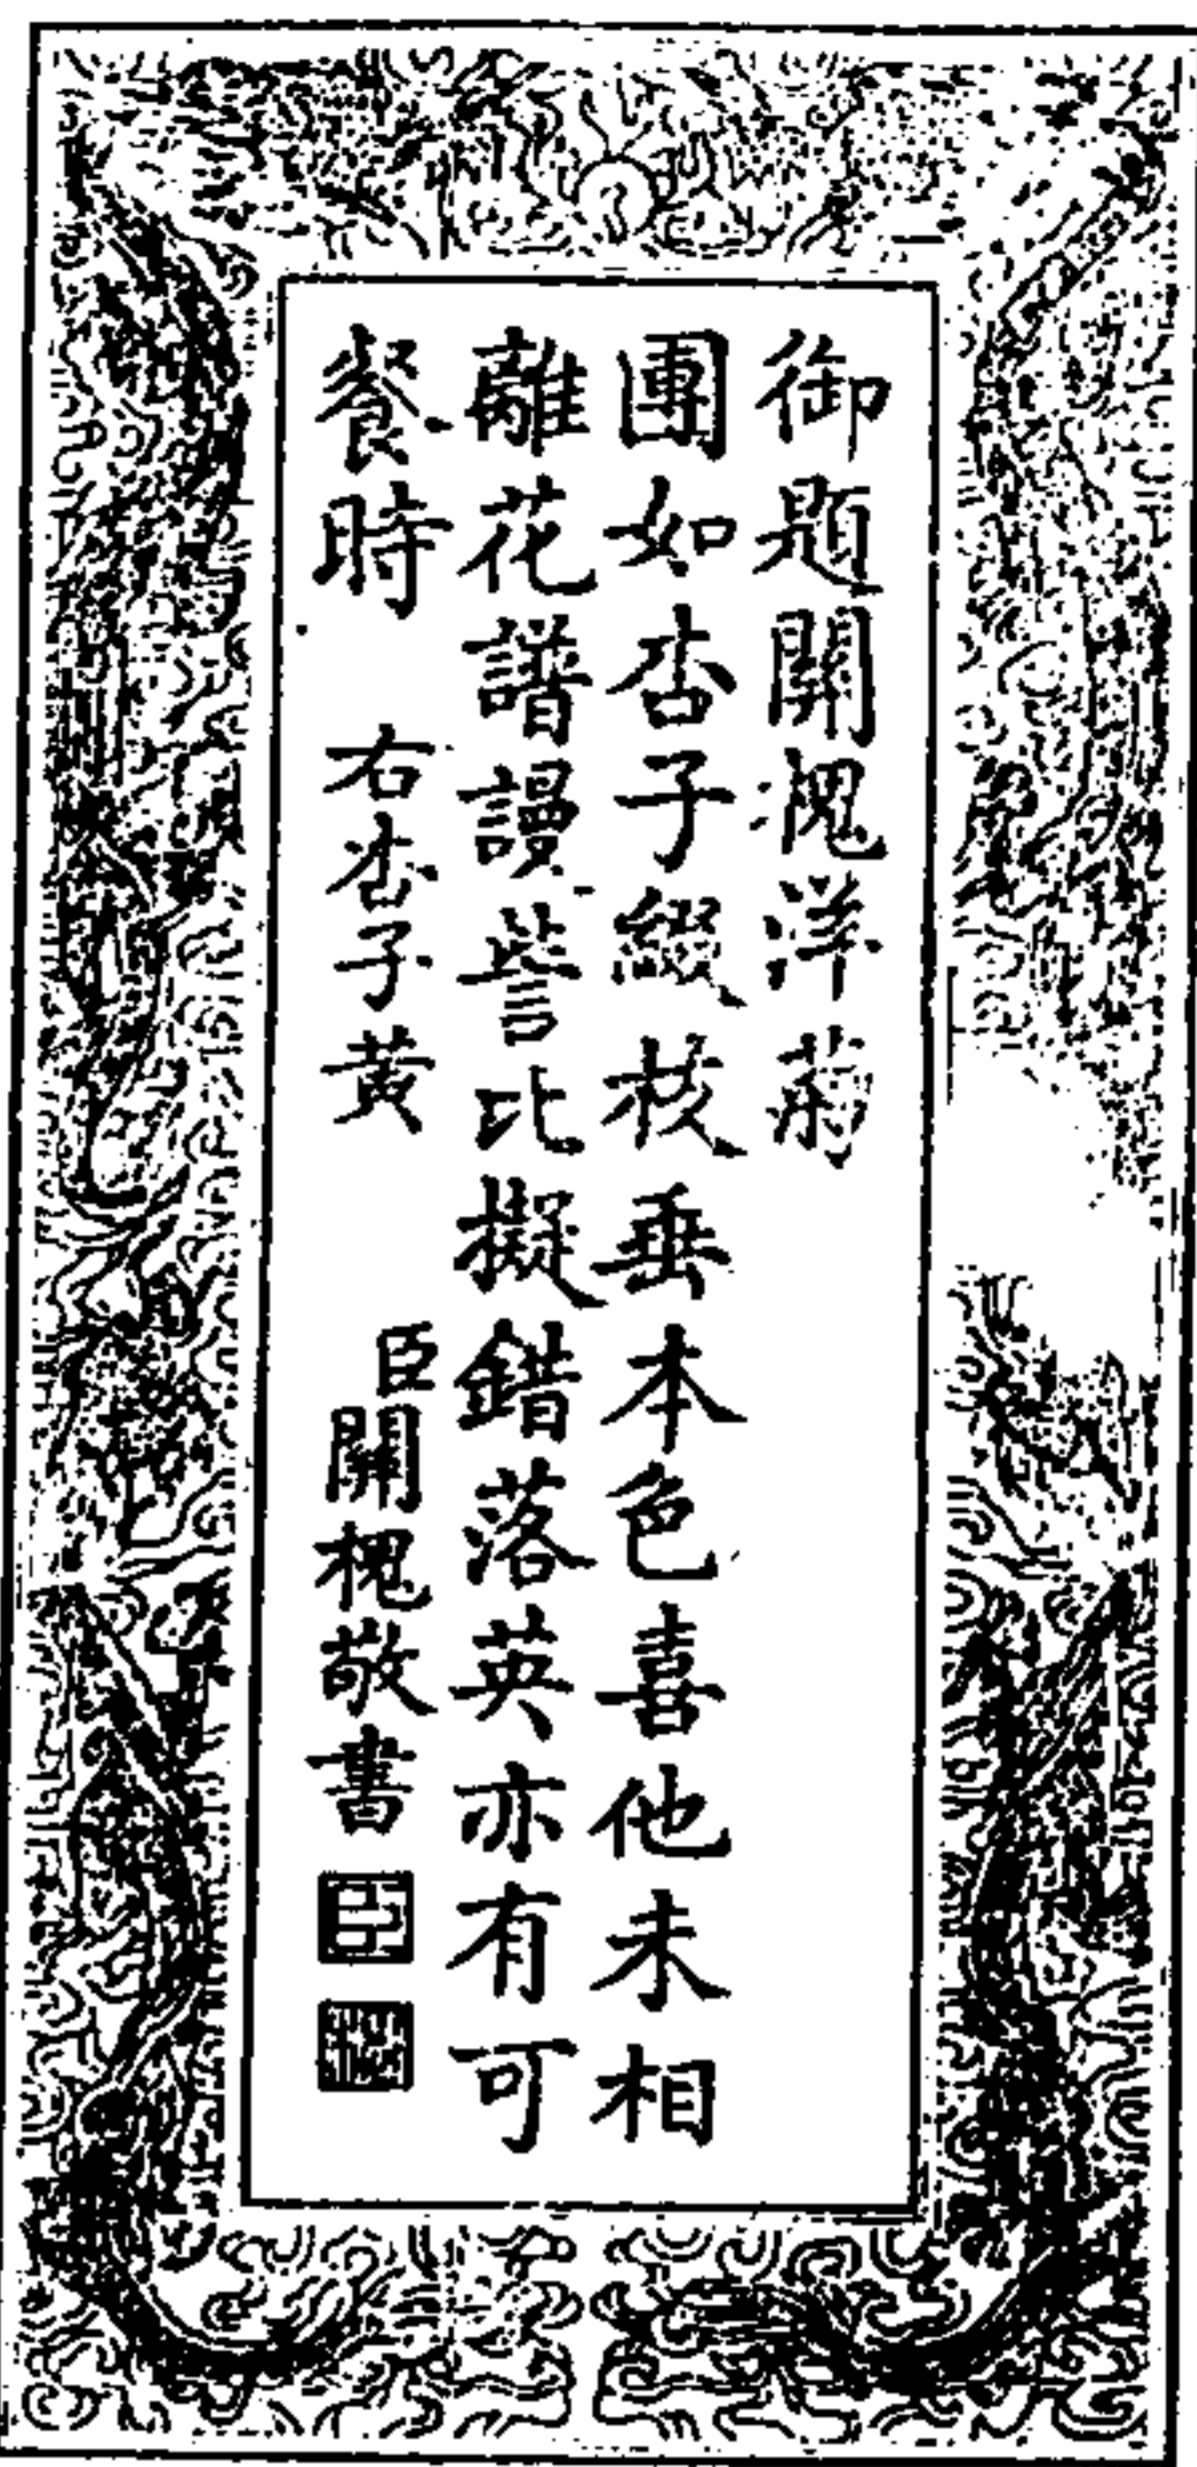 御題開槐洋菊
團如杏子綴枝垂本色喜他未相
離花譜謾訾比擬錯落英亦有可
餐時 右杏子黃 臣開槐敬書
臣